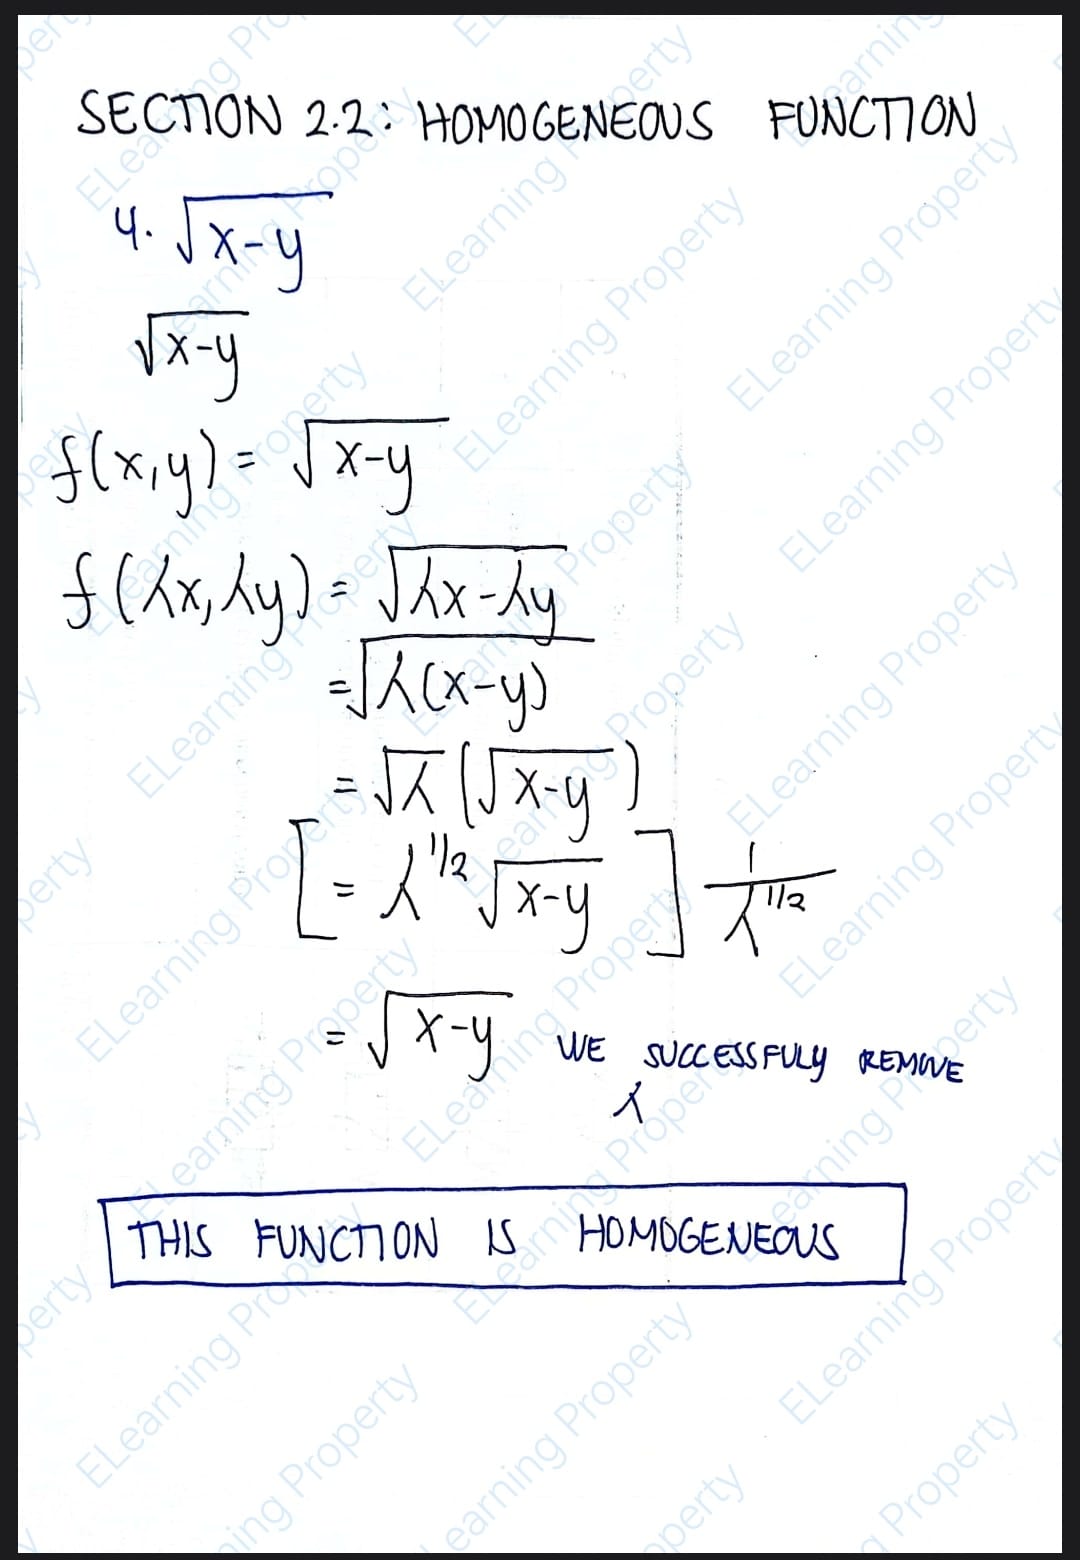 SECTION 2.2: HOMOGENEOUS FUNCTION
4. √x-y
√x-y
f(x,y) = √x-y
f(λx,λy) = √λx-λy
=√λ(x-y)
= √λ (√x-y)
[= λ^1/2 √x-y] 1/λ^1/2
= √x-y WE SUCCESSFULY REMOVE
λ
THIS FUNCTION IS HOMOGENEOUS
ELearning Property